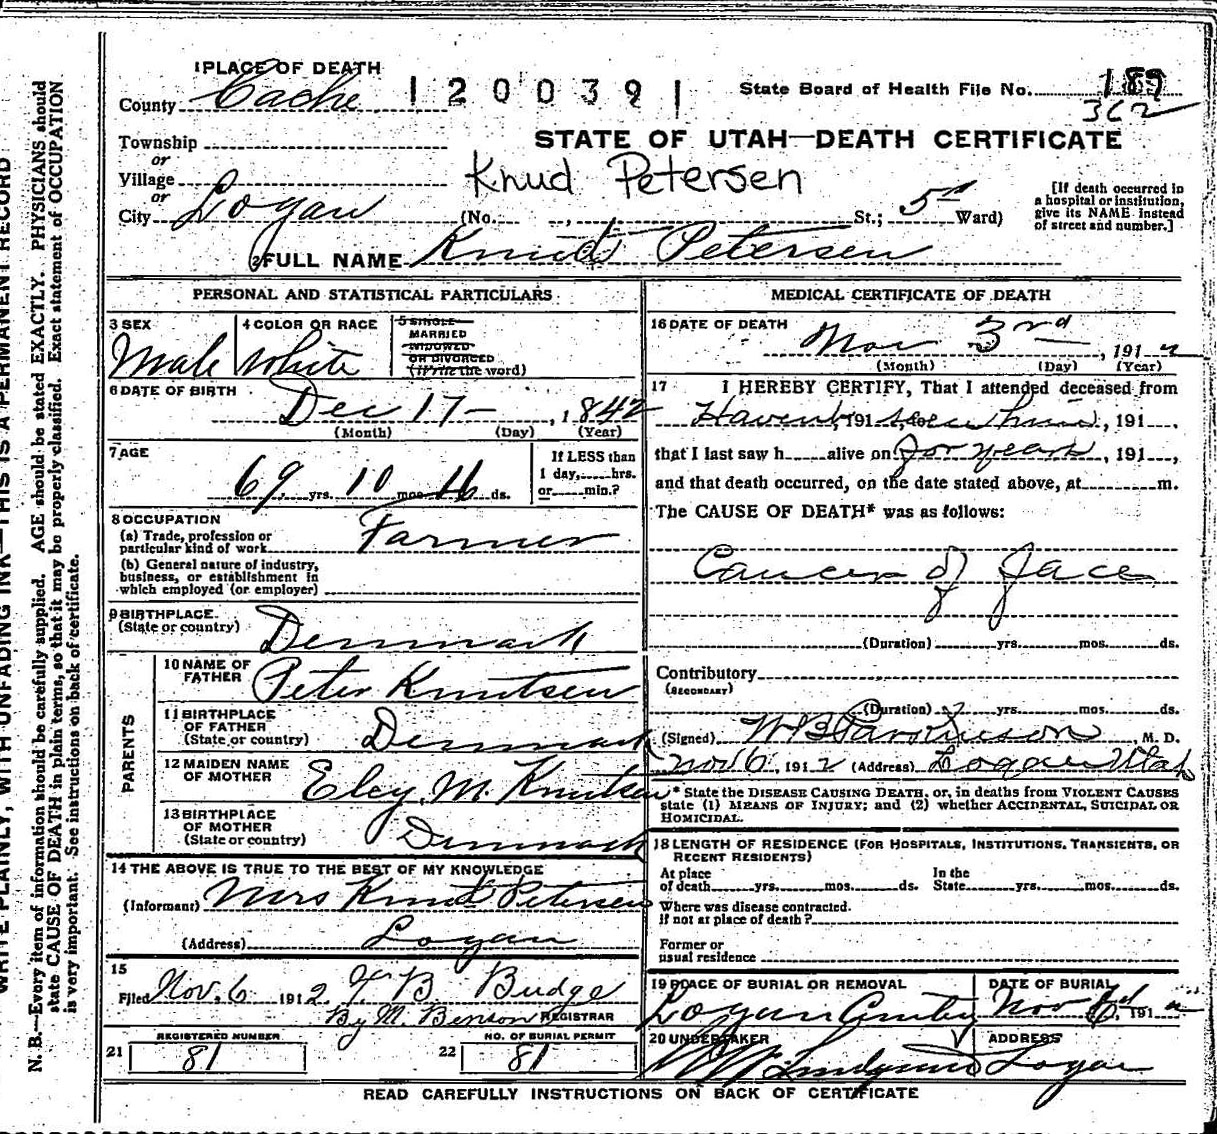 WRITE PLAINLY, WITH UNFADING INK—THIS IS A PERMANENT RECORD
N. B.—Every item of information should be carefully supplied. AGE should be stated EXACTLY. PHYSICIANS should
state CAUSE OF DEATH in plain terms, so that it may be properly classified. Exact statement of OCCUPATION
is very important. See instructions on back of certificate.
1 PLACE OF DEATH
County Cache
120039
State Board of Health File No. 189
362
STATE OF UTAH—DEATH CERTIFICATE
Township
or
Village
Knud Petersen
or
City Logan (No. , St.; 5th Ward)
[If death occurred in
a hospital or institution,
give its NAME instead
of street and number.]
2 FULL NAME Knud Petersen
PERSONAL AND STATISTICAL PARTICULARS
3 SEX
Male
4 COLOR OR RACE
White
5 SINGLE
MARRIED
WIDOWED
OR DIVORCED
(Write the word)
6 DATE OF BIRTH
Dec 17 — , 1842
(Month) (Day) (Year)
7 AGE
69 yrs. 10 mos. 16 ds.
If LESS than
1 day, hrs.
or min.?
8 OCCUPATION
(a) Trade, profession or
particular kind of work Farmer
(b) General nature of industry,
business, or establishment in
which employed (or employer)
9 BIRTHPLACE
(State or country) Denmark
PARENTS
10 NAME OF
FATHER Peter Knutsen
11 BIRTHPLACE
OF FATHER
(State or country) Denmark
12 MAIDEN NAME
OF MOTHER Elcy M. Knutsen
13 BIRTHPLACE
OF MOTHER
(State or country) Denmark
14 THE ABOVE IS TRUE TO THE BEST OF MY KNOWLEDGE
(Informant) Mrs Knud Petersen
(Address) Logan
15
Filed Nov. 6 1912 B Budge
By M. Benson REGISTRAR
REGISTERED NUMBER
21 81
NO. OF BURIAL PERMIT
22 81
MEDICAL CERTIFICATE OF DEATH
16 DATE OF DEATH
Nov 3rd , 1912
(Month) (Day) (Year)
17 I HEREBY CERTIFY, That I attended deceased from
Havent , 191 seen him , 191 ,
that I last saw h alive on for years , 191 ,
and that death occurred, on the date stated above, at m.
The CAUSE OF DEATH* was as follows:
Cancer of face
(Duration) yrs. mos. ds.
Contributory
(SECONDARY)
(Duration) yrs. mos. ds.
(Signed) W B Parkinson , M. D.
Nov 6, 1912 (Address) Logan Utah
* State the DISEASE CAUSING DEATH, or, in deaths from VIOLENT CAUSES
state (1) MEANS OF INJURY; and (2) whether ACCIDENTAL, SUICIDAL OR
HOMICIDAL.
18 LENGTH OF RESIDENCE (FOR HOSPITALS, INSTITUTIONS, TRANSIENTS, OR
RECENT RESIDENTS)
At place
of death yrs. mos. ds.
In the
State yrs. mos. ds.
Where was disease contracted.
if not at place of death?
Former or
usual residence
19 PLACE OF BURIAL OR REMOVAL
Logan
DATE OF BURIAL
Nov 6 1912
20 UNDERTAKER
ADDRESS
Logan
READ CAREFULLY INSTRUCTIONS ON BACK OF CERTIFICATE